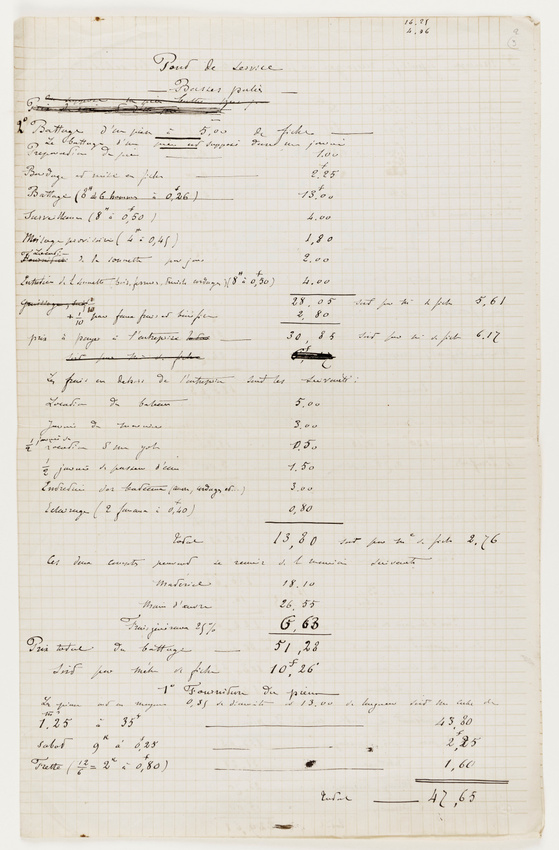 14.21
4.06
Pont de Service
Basses palées
2° Battage d'un pieu à 5,00 de fiche
Le battage d'un pieu est supposé durer une journée
Préparation du pieu 1.00
Bardage et mise en fiche 2,25
Battage (8h 46 hommes à 0f,26) 13,00
Surveillance (8h à 0f,50) 4.00
Moisage provisoire (4h à 0,45) 1,80
Location de la sonnette par jour 2.00
Entretien de la sonnette (bois, ferrures, cordages) (8h à 0f,50) 4.00
28,05 soit par m. de fiche 5,61
+ 1/10 pour faux frais et bénéfices 2,80
prix à payer à l'entreprise 30,85 soit par m. de fiche 6,17
Les frais en dehors de l'entreprise sont les suivants :
Location du bateau 5,00
Journée de marinier 3.00
1/2 journée de location d'un yole 0,50
1/2 journée de passeur d'eau 1,50
Entretien des bateaux (cordage etc) 3,00
Eclairage (2 fanaux à 0f,40) 0,80
Total 13,80 soit par m de fiche 2,76
Ces deux comptes peuvent se réunir de la manière suivante
Matériel 18.10
Main d'œuvre 26,55
Frais généraux 25% 6,63
Prix total du battage 51,28
Soit par mètre de fiche 10f,26
1° Fourniture du pieu
Le pieu ont en moyenne 0,35 de diamètre et 13.00 de longueur soit un cube de
1m3,25 à 35f 43,80
Sabot 9k à 0f,25 2f,25
Frette (12/6 = 2k à 0f,80) 1,60
Total 47,65